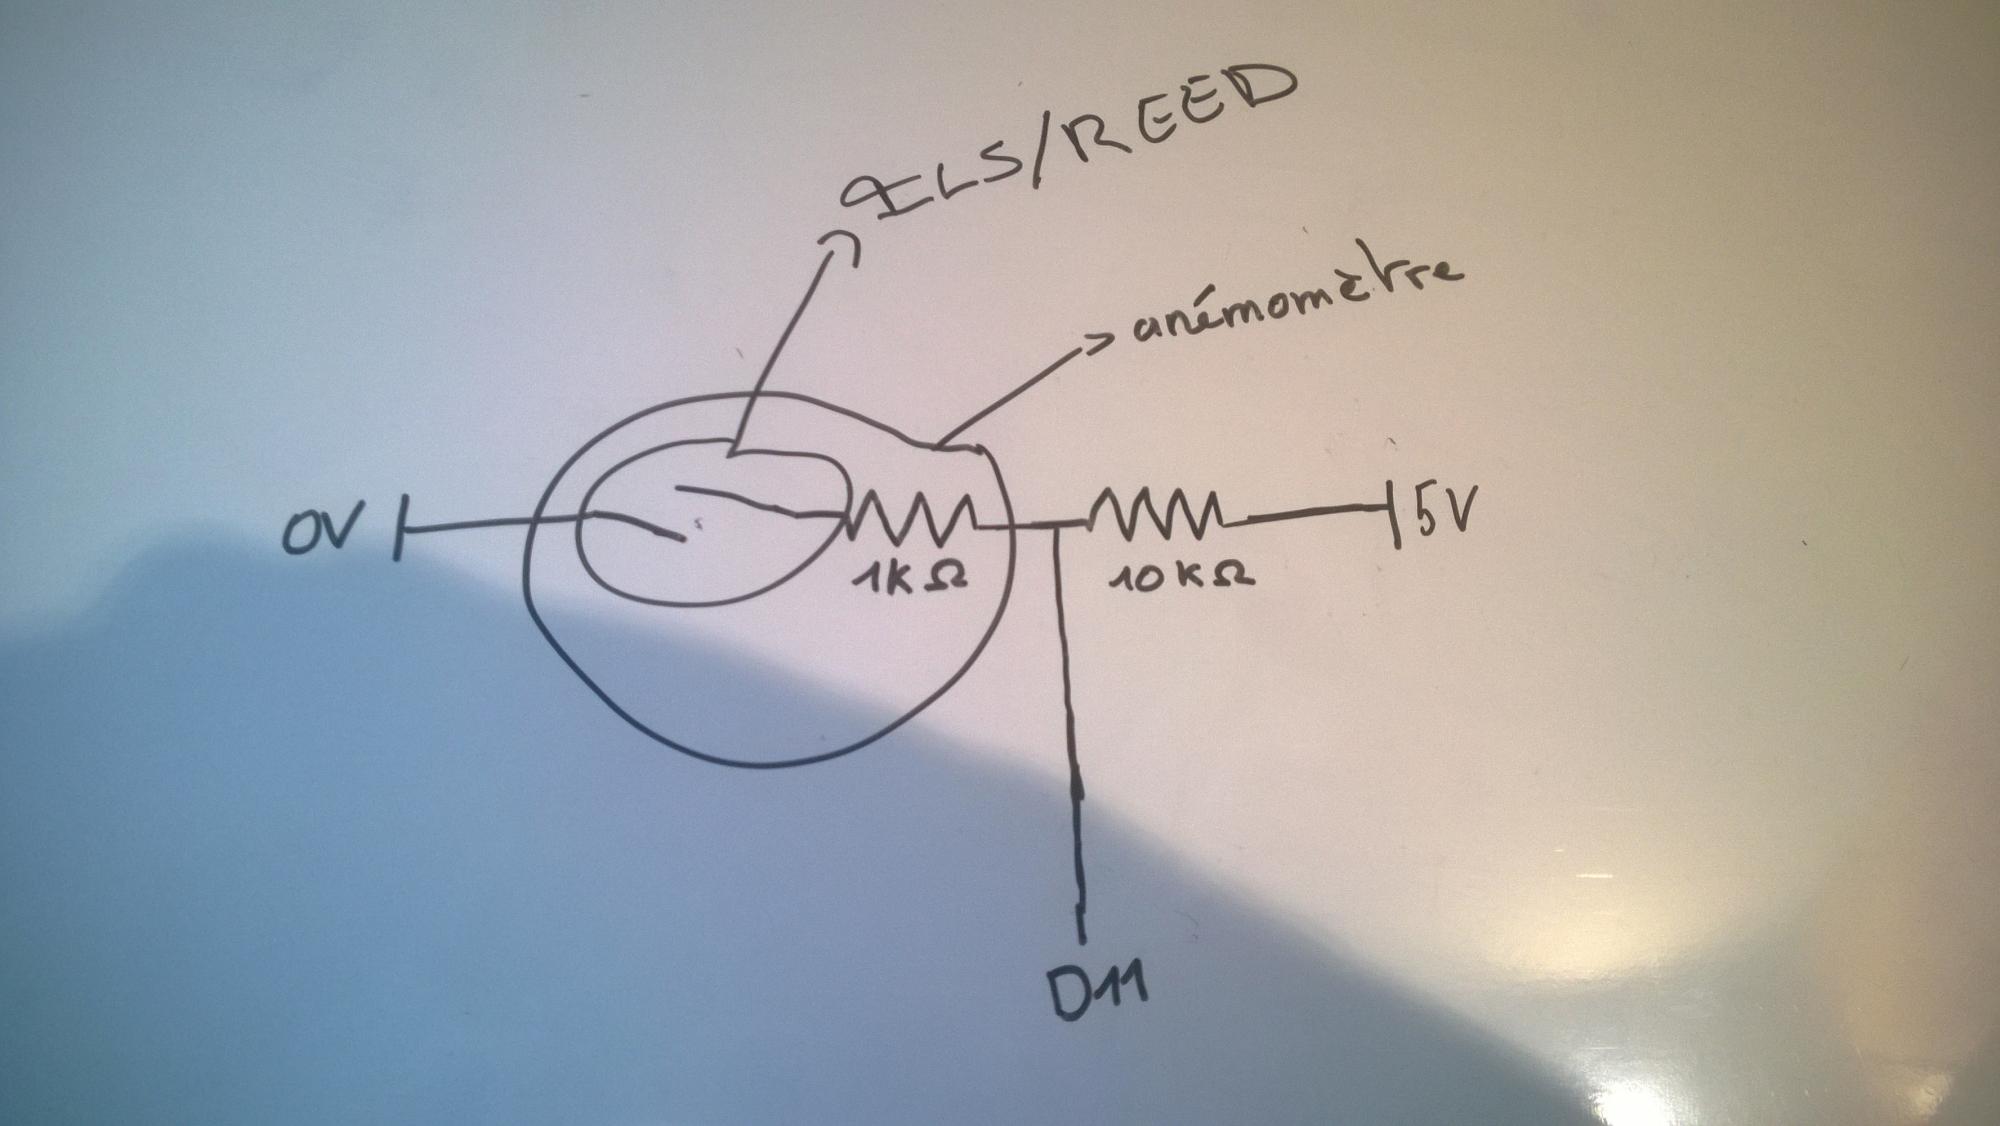 ILS/REED
anémomètre
0V
5V
1KΩ
10KΩ
D11